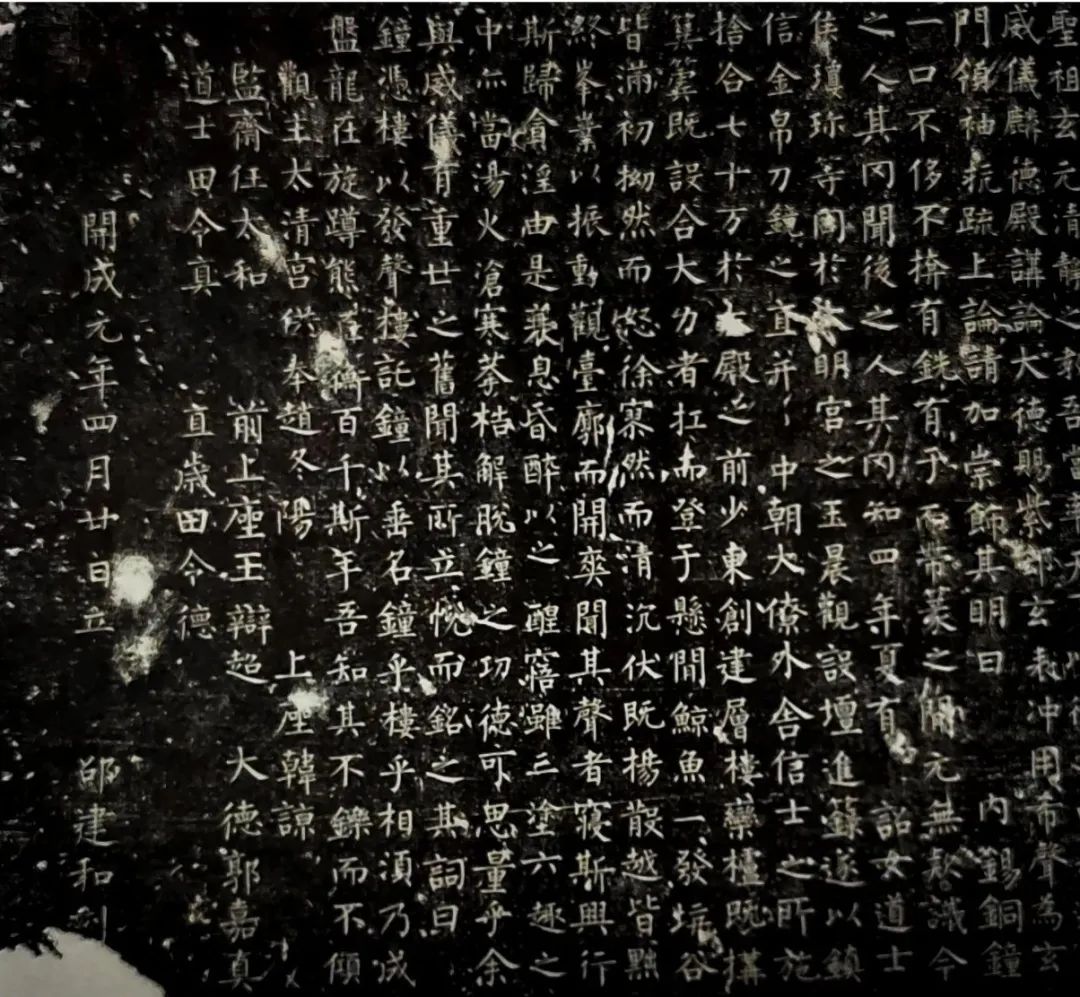 聖祖玄元清静之教吾當奉天
威儀麟德殿講論大德賜紫鄧玄 沖用希聲為玄
門領袖抗疏上論請加崇飾其明日 內錫銅鐘
一口不侈不撛有銑有于而帶篆之間元無款識今
之人其罔聞後之人其罔知四年夏有 詔女道士
侯瓊珍等同於大明宮之玉晨觀設壇進籙遂以鎮
信金帛刀鏡之直并中朝大僚外舍信士之所施
捨合七十万於大殿之前少東創建層樓欒櫨既構
簨簴既設合大力者扛而登于懸間鯨魚一發坑谷
皆滿初拗然而怒徐寥然而清沉伏既揚散越皆黜
終峯業以振動觀臺廓而開爽聞其聲者寢斯興行
斯歸貪淫由是衰息昏醉以之醒寤雖三塗六趣之
中亦當湯火滄寒拲梏解脫鐘之功德可思量乎余
與威儀有重廿之舊聞其所立悅而銘之其詞曰
鐘憑樓以發聲樓託鐘以垂名鐘乎樓乎相須乃成
盤龍在旋蹲熊在衡百千斯年吾知其不鑠而不傾
觀主太清宮供奉趙冬陽 上座韓諒
監齋任太和 前上座王辯超 大德郭嘉真
道士田令真 直歲田令德
開成元年四月廿日立 邵建和刻